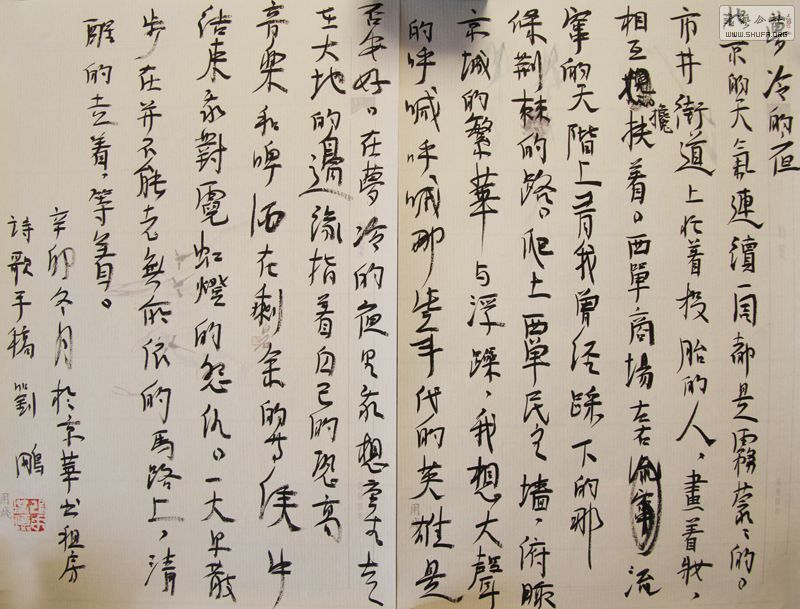 夢冷的夜
北京的天氣連續一周都是霧蒙々的。
市井街道上忙着投胎的人，畫着妝，
相互攙扶着。西單商場左右流
窜的天階上有我曾经踩下的那
荆棘的路。爬上西单民主墙，俯瞰
京城的繁華与浮躁，我想大聲
的呼喊呼喊那些年代的英雄是
否安好。在夢冷的夜里我想走
在大地的邊缘指着自己的恐高
音樂和啤酒在剩余的等侯中
结束我對霓虹燈的怨仇。一大早散
步在并不能無所依的馬路上，清
醒的走着，等着。
辛卯冬月於京華出租房
詩歌手稿 劉鵬
WWW.SHUFA.ORG